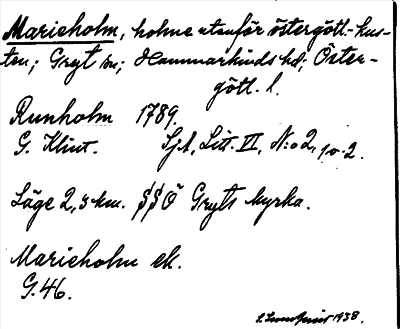 Marieholm, holme utanför östergötl.-kus-
ten; Gryt sn; Hammarkinds hd; Öster-
götl. l.
Runholm 1789.
G. Klint. Sj.k, Litt. VI, N:o 2, 1,0.2.
Läge 2,3 km. SSÖ Gryts kyrka.
Marieholm ek.
G. 46.
1938.